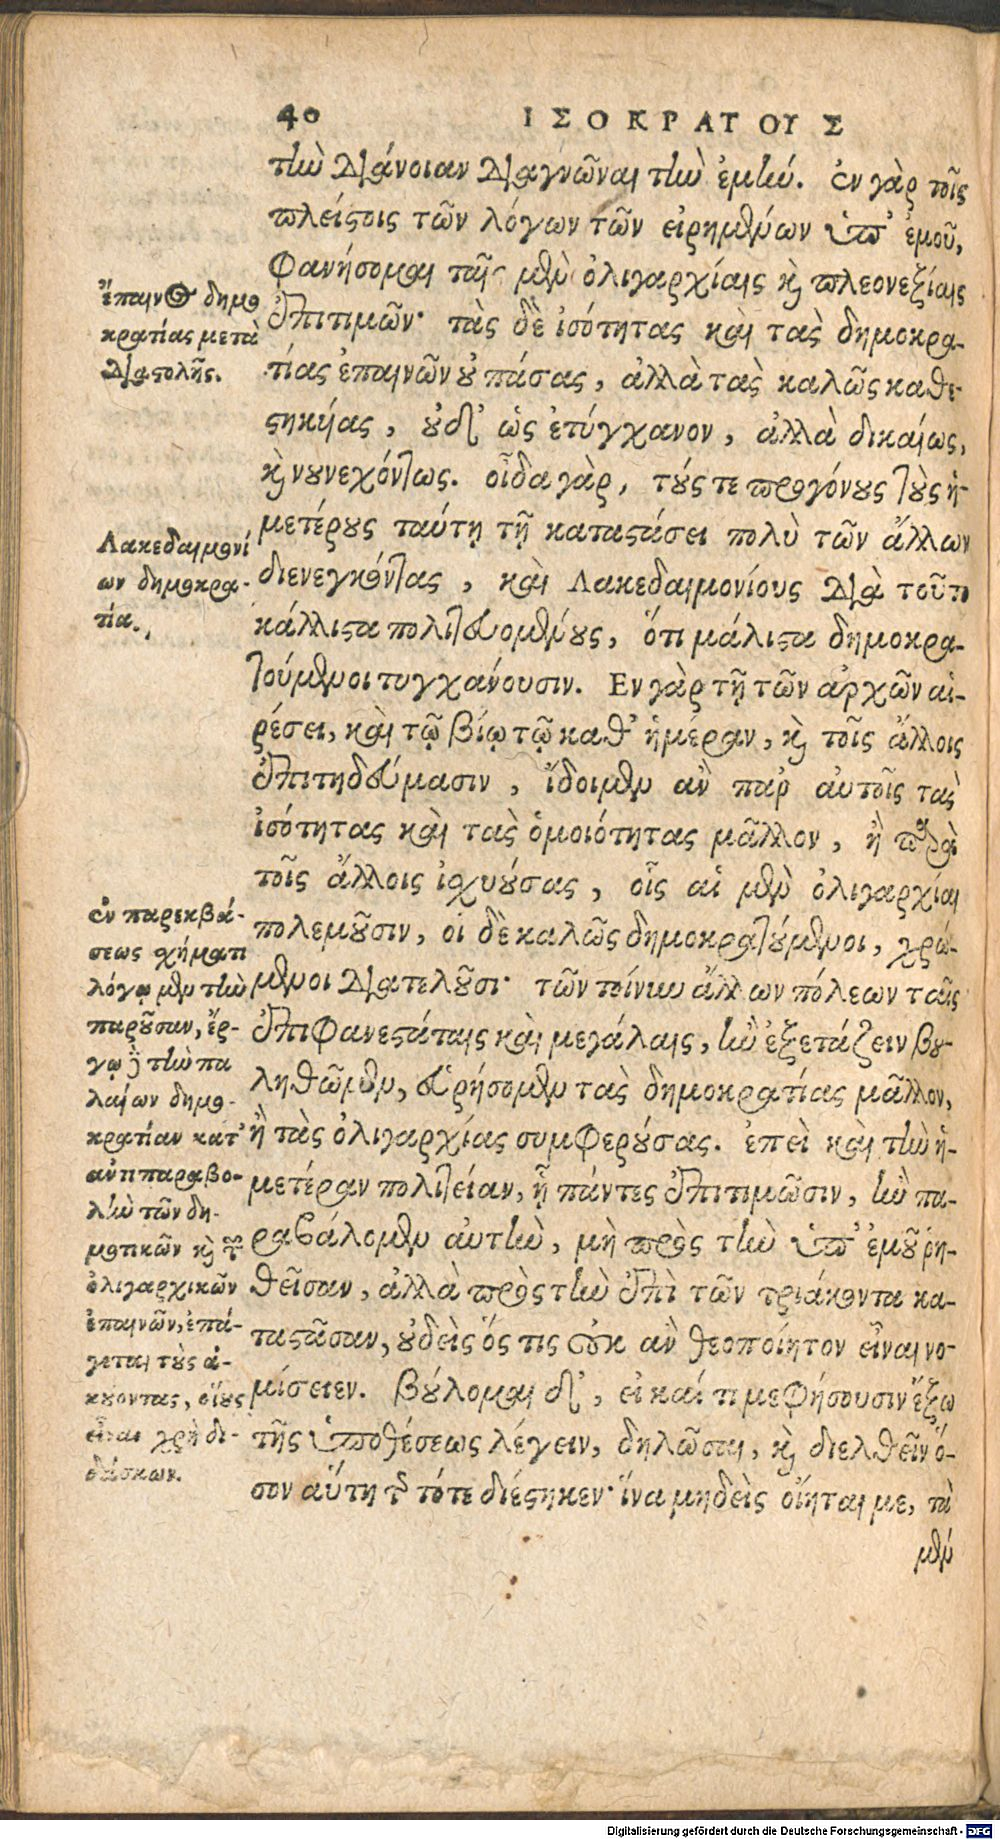 40 ΙΣΟΚΡΑΤΟΥΣ
τὴν διάνοιαν διαγνῶναι τὴν ἐμήν. ἐν γὰρ τοῖς
πλείστοις τῶν λόγων τῶν εἰρημένων ὑπ' ἐμοῦ,
φανήσομαι ταῖς μὲν ὀλιγαρχίαις καὶ πλεονεξίαις
ἐπιτιμῶν· τὰς δὲ ἰσότητας καὶ τὰς δημοκρα-
τίας ἐπαινῶν οὐ πάσας, ἀλλὰ τὰς καλῶς καθε-
στηκυίας, οὐδ' ὡς ἐτύγχανον, ἀλλὰ δικαίως,
καὶ νουνεχόντως. οἶδα γὰρ, τούς τε προγόνους τοὺς ἡ-
μετέρους ταύτῃ τῇ καταστάσει πολὺ τῶν ἄλλων
διενεγκόντας, καὶ Λακεδαιμονίους διὰ τοῦτο
κάλλιστα πολιτευομένους, ὅτι μάλιστα δημοκρα-
τούμενοι τυγχάνουσιν. Ἐν γὰρ τῇ τῶν ἀρχῶν αἱ-
ρέσει, καὶ τῷ βίῳ τῷ καθ' ἡμέραν, καὶ τοῖς ἄλλοις
ἐπιτηδεύμασιν, ἴδοιμεν ἂν παρ' αὐτοῖς τὰς
ἰσότητας καὶ τὰς ὁμοιότητας μᾶλλον, ἢ παρὰ
τοῖς ἄλλοις ἰσχυούσας, οἷς αἱ μὲν ὀλιγαρχίαι
πολεμοῦσιν, οἱ δὲ καλῶς δημοκρατούμενοι, χρώ-
μενοι διατελοῦσι· τῶν τοίνυν ἄλλων πόλεων ταῖς
ἐπιφανεστάταις καὶ μεγάλαις, ἢν ἐξετάζειν βου-
ληθῶμεν, εὑρήσομεν τὰς δημοκρατίας μᾶλλον,
ἢ τὰς ὀλιγαρχίας συμφερούσας. ἐπεὶ καὶ τὴν ἡ-
μετέραν πολιτείαν, ᾗ πάντες ἐπιτιμῶσιν, ἢν πα-
ραβάλομεν αὐτὴν, μὴ πρὸς τὴν ὑπ' ἐμοῦ ῥη-
θεῖσαν, ἀλλὰ πρὸς τὴν ἐπὶ τῶν τριάκοντα κα-
ταστᾶσαν, οὐδεὶς ὅς τις οὐκ ἂν θεοποίητον εἶναι νο-
μίσειεν. βούλομαι δ', εἰ καί τι με φήσουσιν ἔξω
τῆς ὑποθέσεως λέγειν, δηλῶσαι, καὶ διελθεῖν ὅ-
σον αὕτη τῆς τότε διέστηκεν· ἵνα μηδεὶς οἴηταί με, τὰ
μὲν
ἔπαινος δημο
κρατίας μετὰ
διαστολῆς.
Λακεδαιμονί
ων δημοκρα-
τία.
ἐν παρεκβά-
σεως σχήματι
λόγῳ μὲν τὴν
παροῦσαν, ἔρ-
γῳ δὲ τὴν πα
λαίων δημο-
κρατίαν κατ'
ἀντιπαραβο-
λὴν τῶν δη-
μοτικῶν καὶ τῶν
ὀλιγαρχικῶν
ἐπαινῶν, ἐπά-
γεται τοὺς ἀ-
κούοντας, οἵους
εἶναι χρὴ δι-
δάσκων.
Digitalisierung gefördert durch die Deutsche Forschungsgemeinschaft - DFG